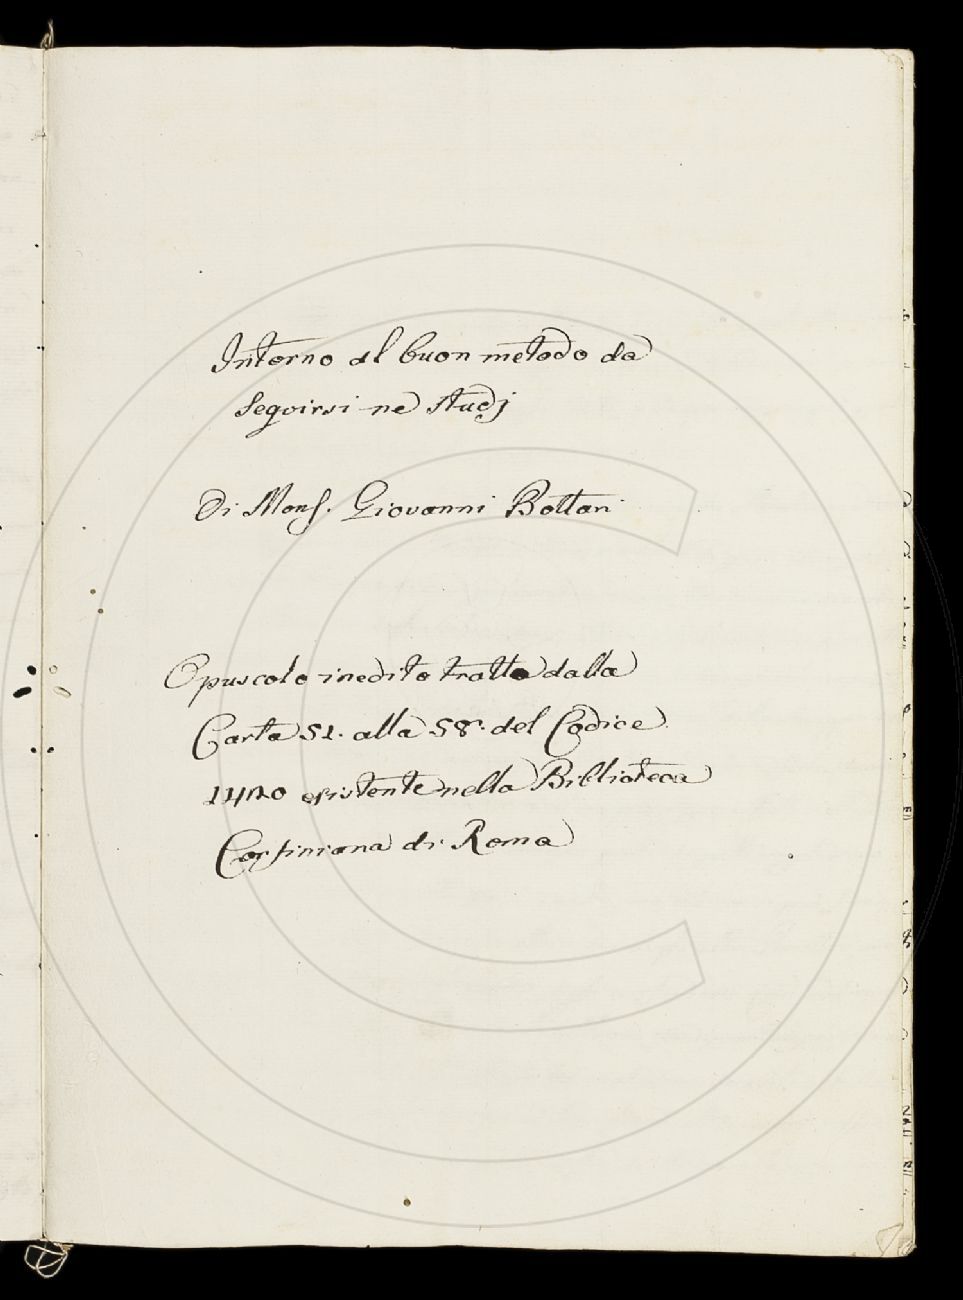 Intorno al buon metodo da
seguirsi ne studj
Di Mons. Giovanni Bottari
Opuscolo inedito tratto dalla
Carta 51. alla 58. del Codice
esistente nella Biblioteca
Corsiniana di Roma